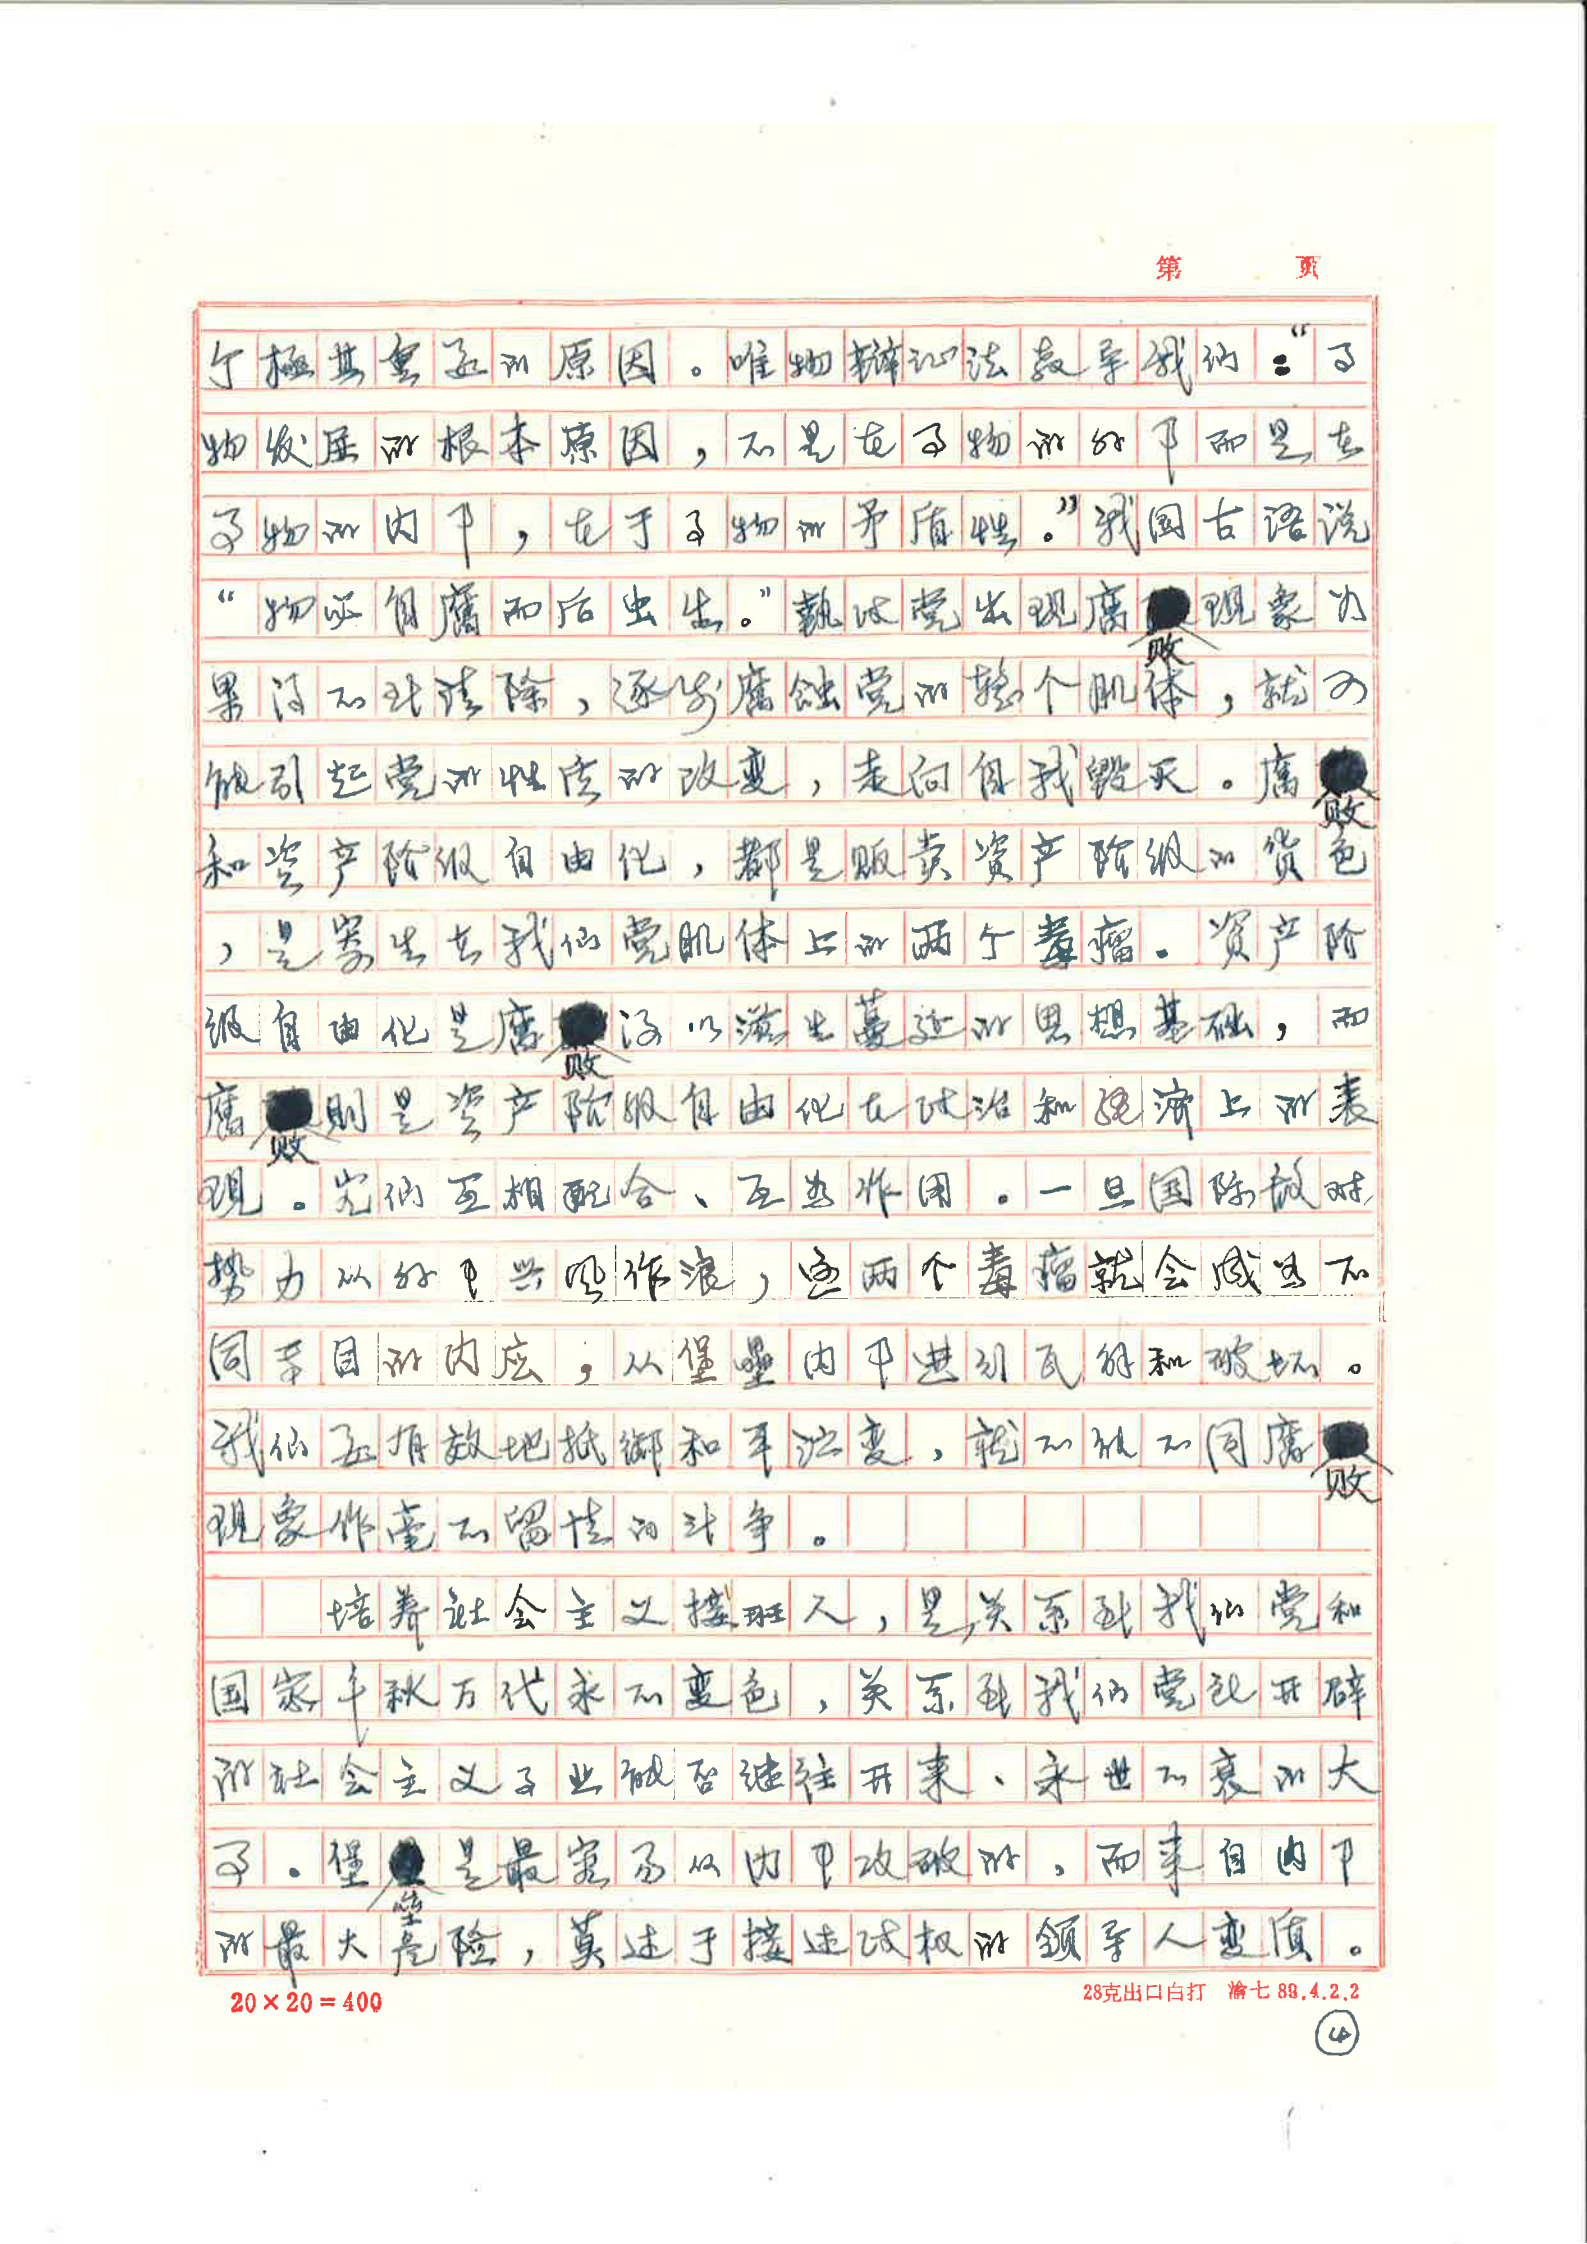 第 页
个極其重要的原因。唯物辩证法教导我们：“事
物发展的根本原因，不是在事物的外部而是在
事物的内部，在于事物的矛盾性。”我国古语说
“物必自腐而后虫生。”執政党出现腐败现象如
果得不到清除，逐步腐蚀党的整个肌体，就可
能引起党的性质的改变，走向自我毁灭。腐败
和资产阶级自由化，都是贩卖资产阶级的货色
，是寄生在我们党肌体上的两个毒瘤。资产阶
级自由化是腐败得以滋生蔓延的思想基础，而
腐败则是资产阶级自由化在政治和经济上的表
现。它们互相配合、互为作用。一旦国际敌对
势力从外部兴风作浪，这两个毒瘤就会成为不
同来目的内应，从堡壘内部进行瓦解和破坏。
我们要有效地抵御和平演变，就不能不同腐败
现象作毫不留情的斗争。
培养社会主义接班人，是关系到我们党和
国家千秋万代永不变色，关系到我们党所开辟
的社会主义事业能否继往开来、永世不衰的大
事。堡垒是最容易从内部攻破的，而来自内部
的最大危险，莫过于接过政权的領导人变质。
20×20=400
28克出口白打 渝七 89.4.2.2
4